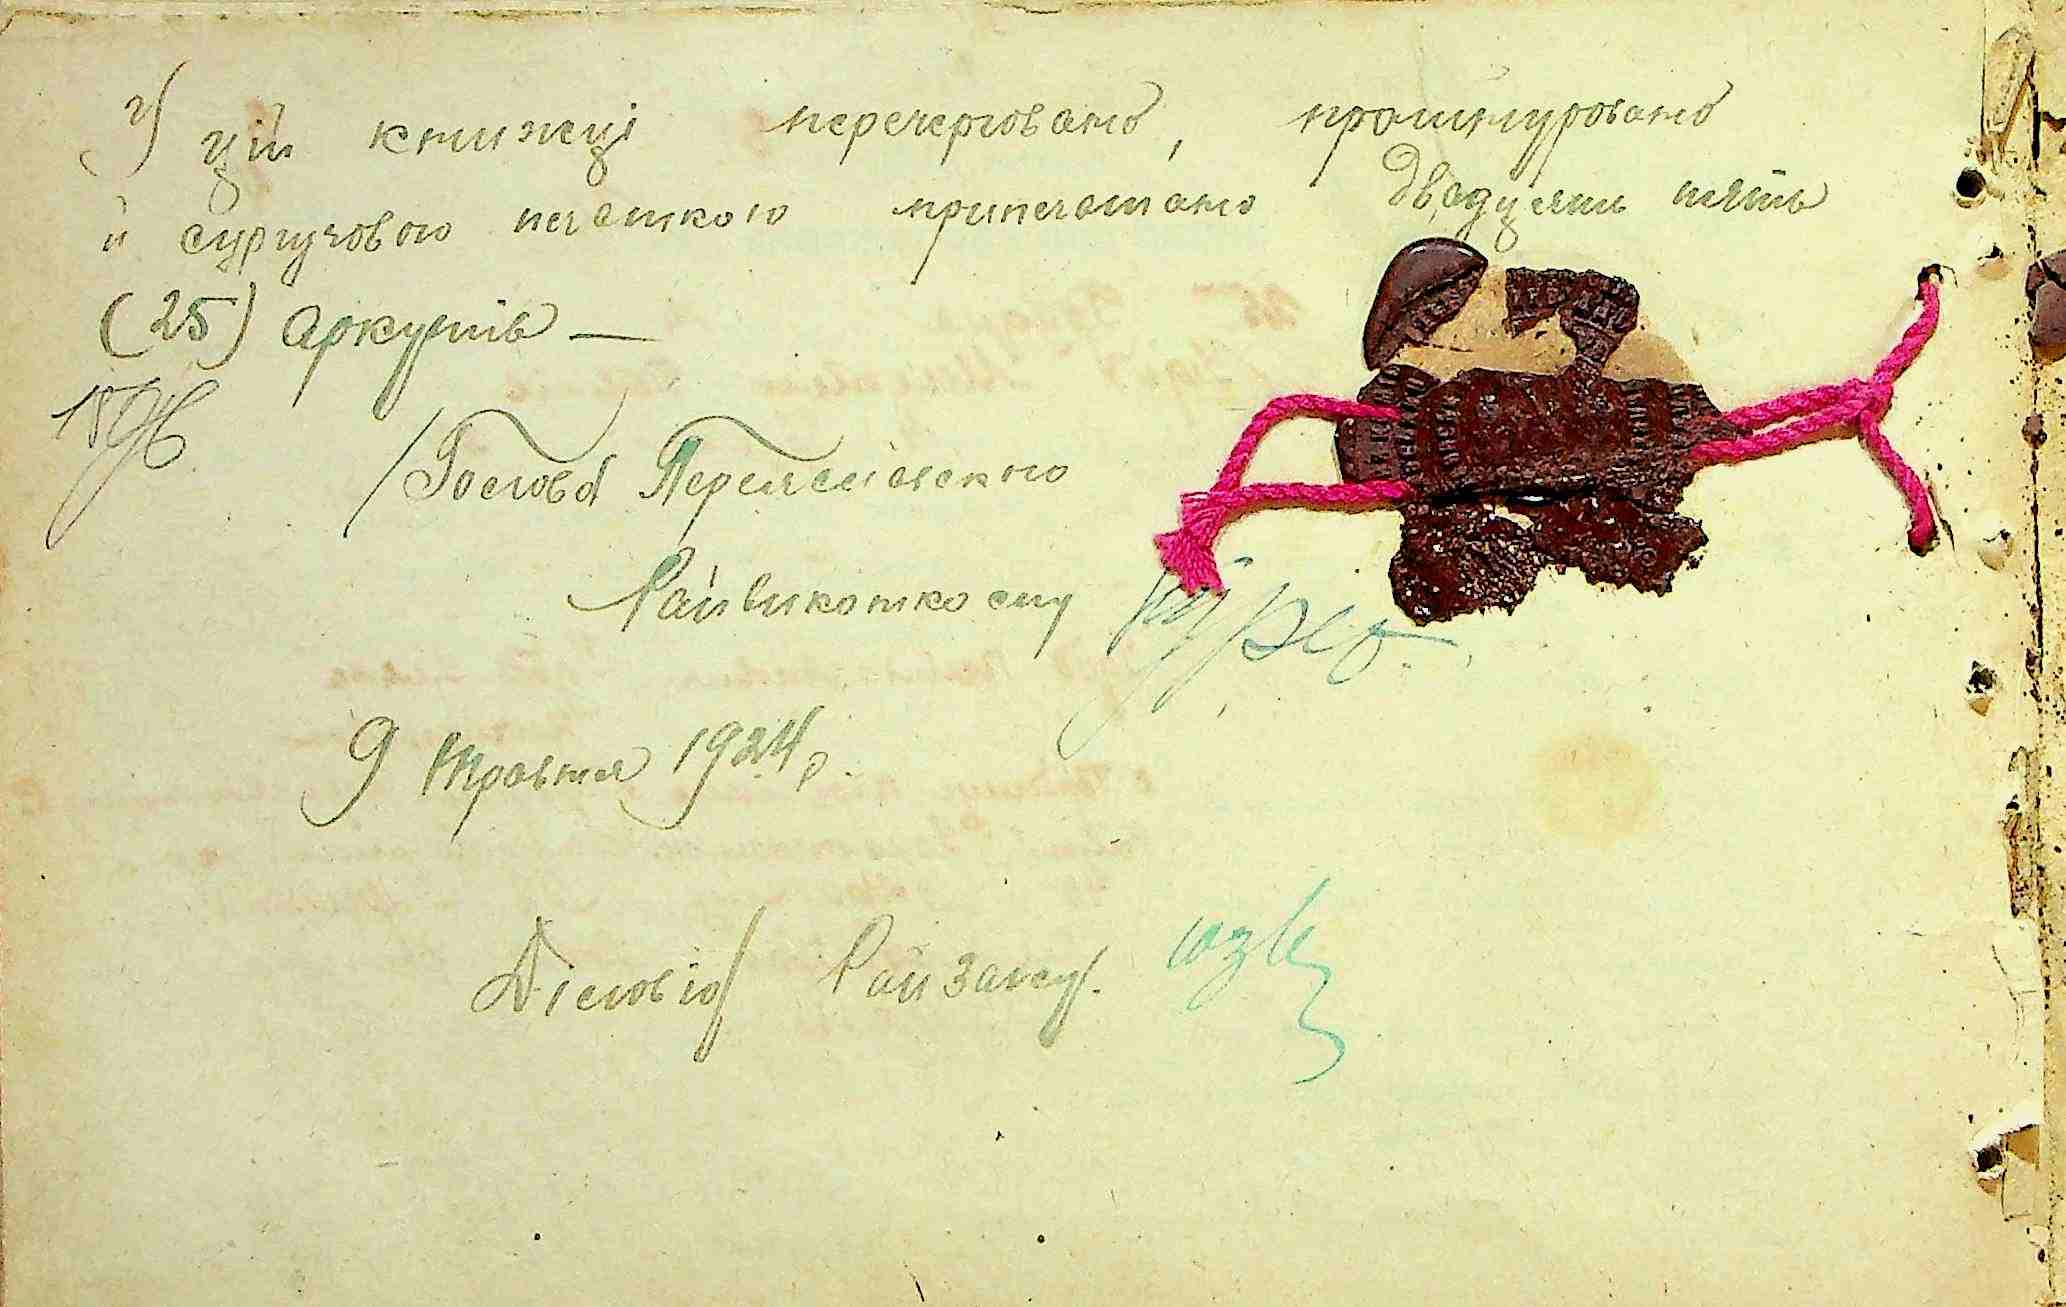 У цій книжеці перечерговано, прошнуровано
й сургучовою печаткою припечатано двадцять пять
(25) аркушів —
Голова
Райвиконкому
9 Травня 1924 р.
Діловод Райзагсу.